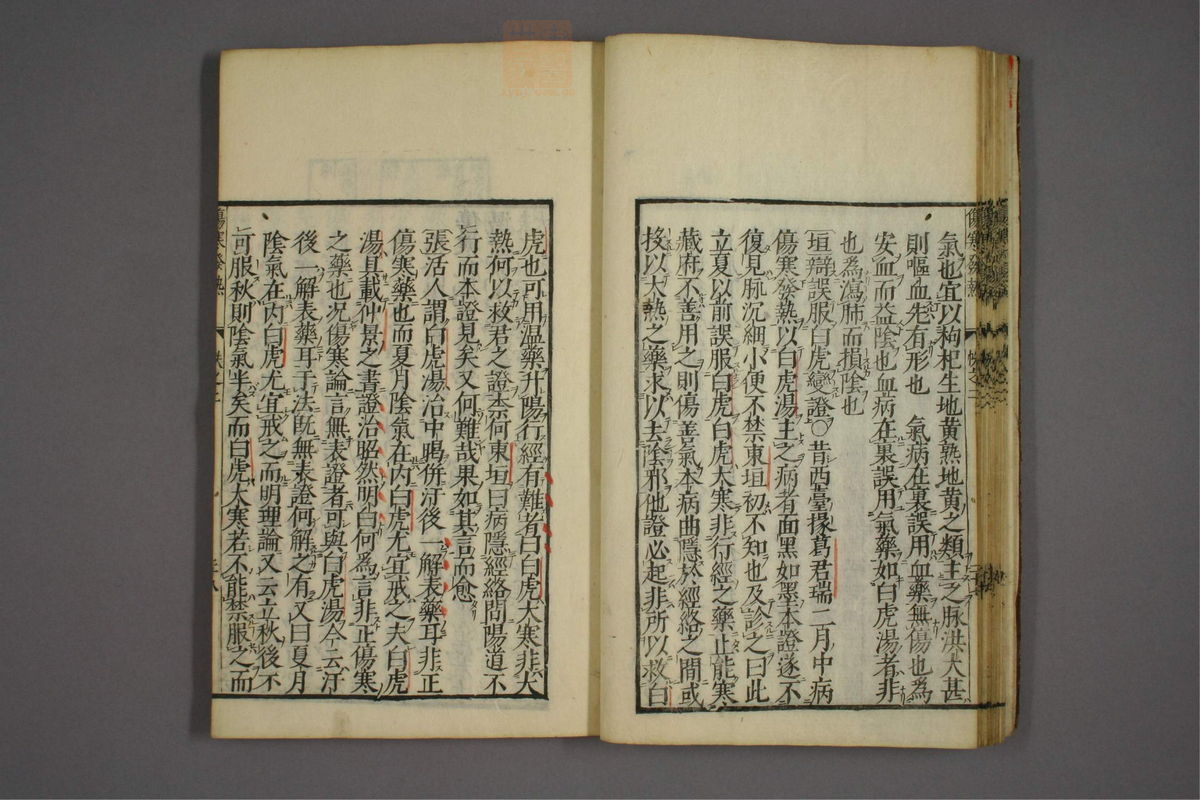 氣也宜以枸杞生地黃熟地黃之類主之脉洪大甚
則嘔血先有形也　氣病在裏誤用血藥無傷也爲
安血而益陰也血病在裏誤用氣藥如白虎湯者非
也爲瀉肺而損陰也
垣辯誤服白虎變證○昔西臺掾葛君瑞二月中病
傷寒發熱以白虎湯主之病者面黑如墨本證遂不
復見脉沉細小便不禁東垣初不知也及診之曰此
立夏以前誤服白虎白虎大寒非行經之藥止能寒
藏府不善用之則傷善氣本病曲隱於經絡之間或
投以大熱之藥求以去陰邪他證必起非所以救白
虎也可用温藥升陽行經有難者曰白虎大寒非大
熱何以救君之證柰何東垣曰病隱經絡問陽道不
行而本證見矣又何難哉果如其言而愈
張活人謂白虎湯治中暍併汗後一解表藥耳非正
傷寒藥也而夏月陰氣在内白虎尤宜戒之夫白虎
湯具載仲景之書證治昭然明白何爲言非正傷寒
之藥也况傷寒論言無表證者可與白虎湯今云汗
後一解表藥耳于法既無表證何解之有又曰夏月
陰氣在内白虎尤宜戒之而明理論又云立秋後不
可服秋則陰氣半矣而白虎大寒若不能禁服之而
傷寒發熱